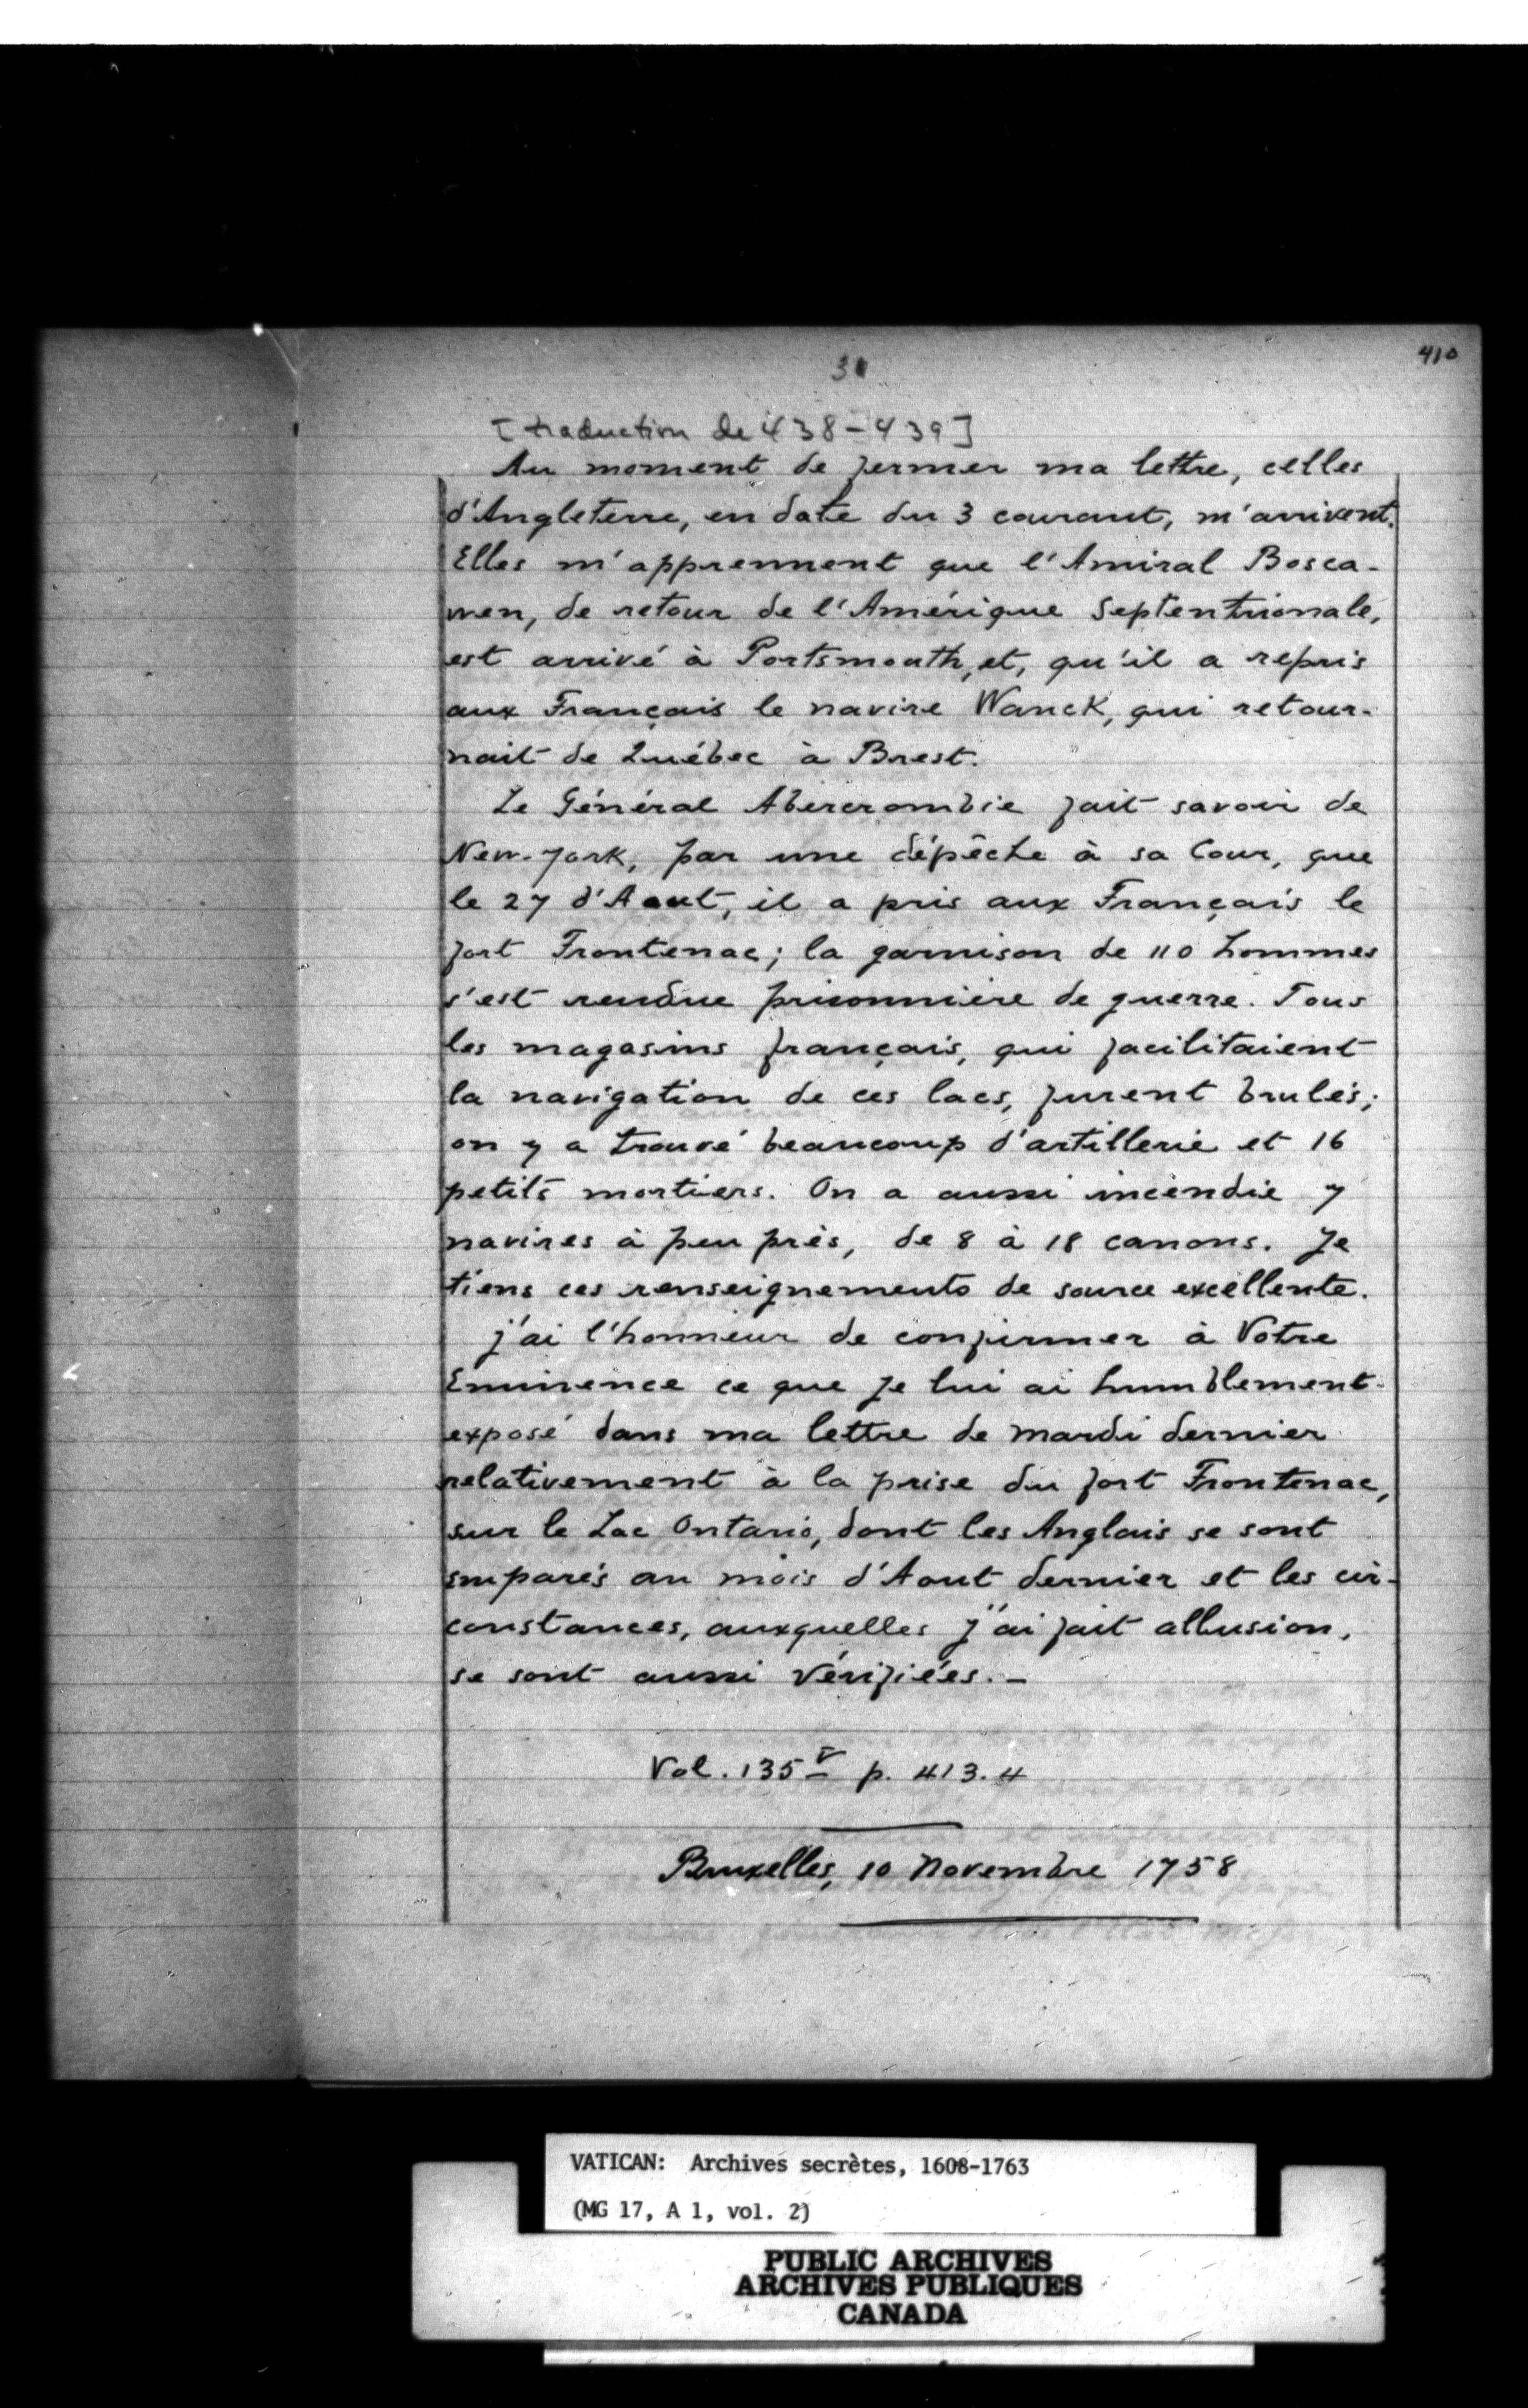 410
31
[traduction de 438-439]
Au moment de fermer ma lettre, celles
d'Angleterre, en date du 3 courant, m'arrivent.
Elles m'apprennent que l'Amiral Bosca-
wen, de retour de l'Amérique Septentrionale,
est arrivé à Portsmouth, et, qu'il a repris
aux Français le navire Wanck, qui retour-
nait de Québec à Brest.
Le Général Abercrombie fait savoir de
New-York, par une dépêche à sa Cour, que
le 27 d'Aout, il a pris aux Français le
fort Frontenac; la garnison de 110 hommes
s'est rendue prisonnière de guerre. Tous
les magasins français, qui facilitaient
la navigation de ces lacs, furent brulés;
on y a trouvé beaucoup d'artillerie et 16
petits mortiers. On a aussi incendie 7
navires à peu près, de 8 à 18 canons. Je
tiens ces renseignements de source excellente.
J'ai l'honneur de confirmer à Votre
Eminence ce que je lui ai humblement
exposé dans ma lettre de mardi dernier
relativement à la prise du fort Frontenac,
sur le Lac Ontario, dont les Anglais se sont
emparés au mois d'Aout dernier et les cir-
constances, auxquelles j'ai fait allusion,
se sont aussi vérifiées. -
Vol. 135 V p. 413.4
Bruxelles, 10 Novembre 1758
VATICAN: Archives secrètes, 1608-1763
(MG 17, A 1, vol. 2)
PUBLIC ARCHIVES
ARCHIVES PUBLIQUES
CANADA